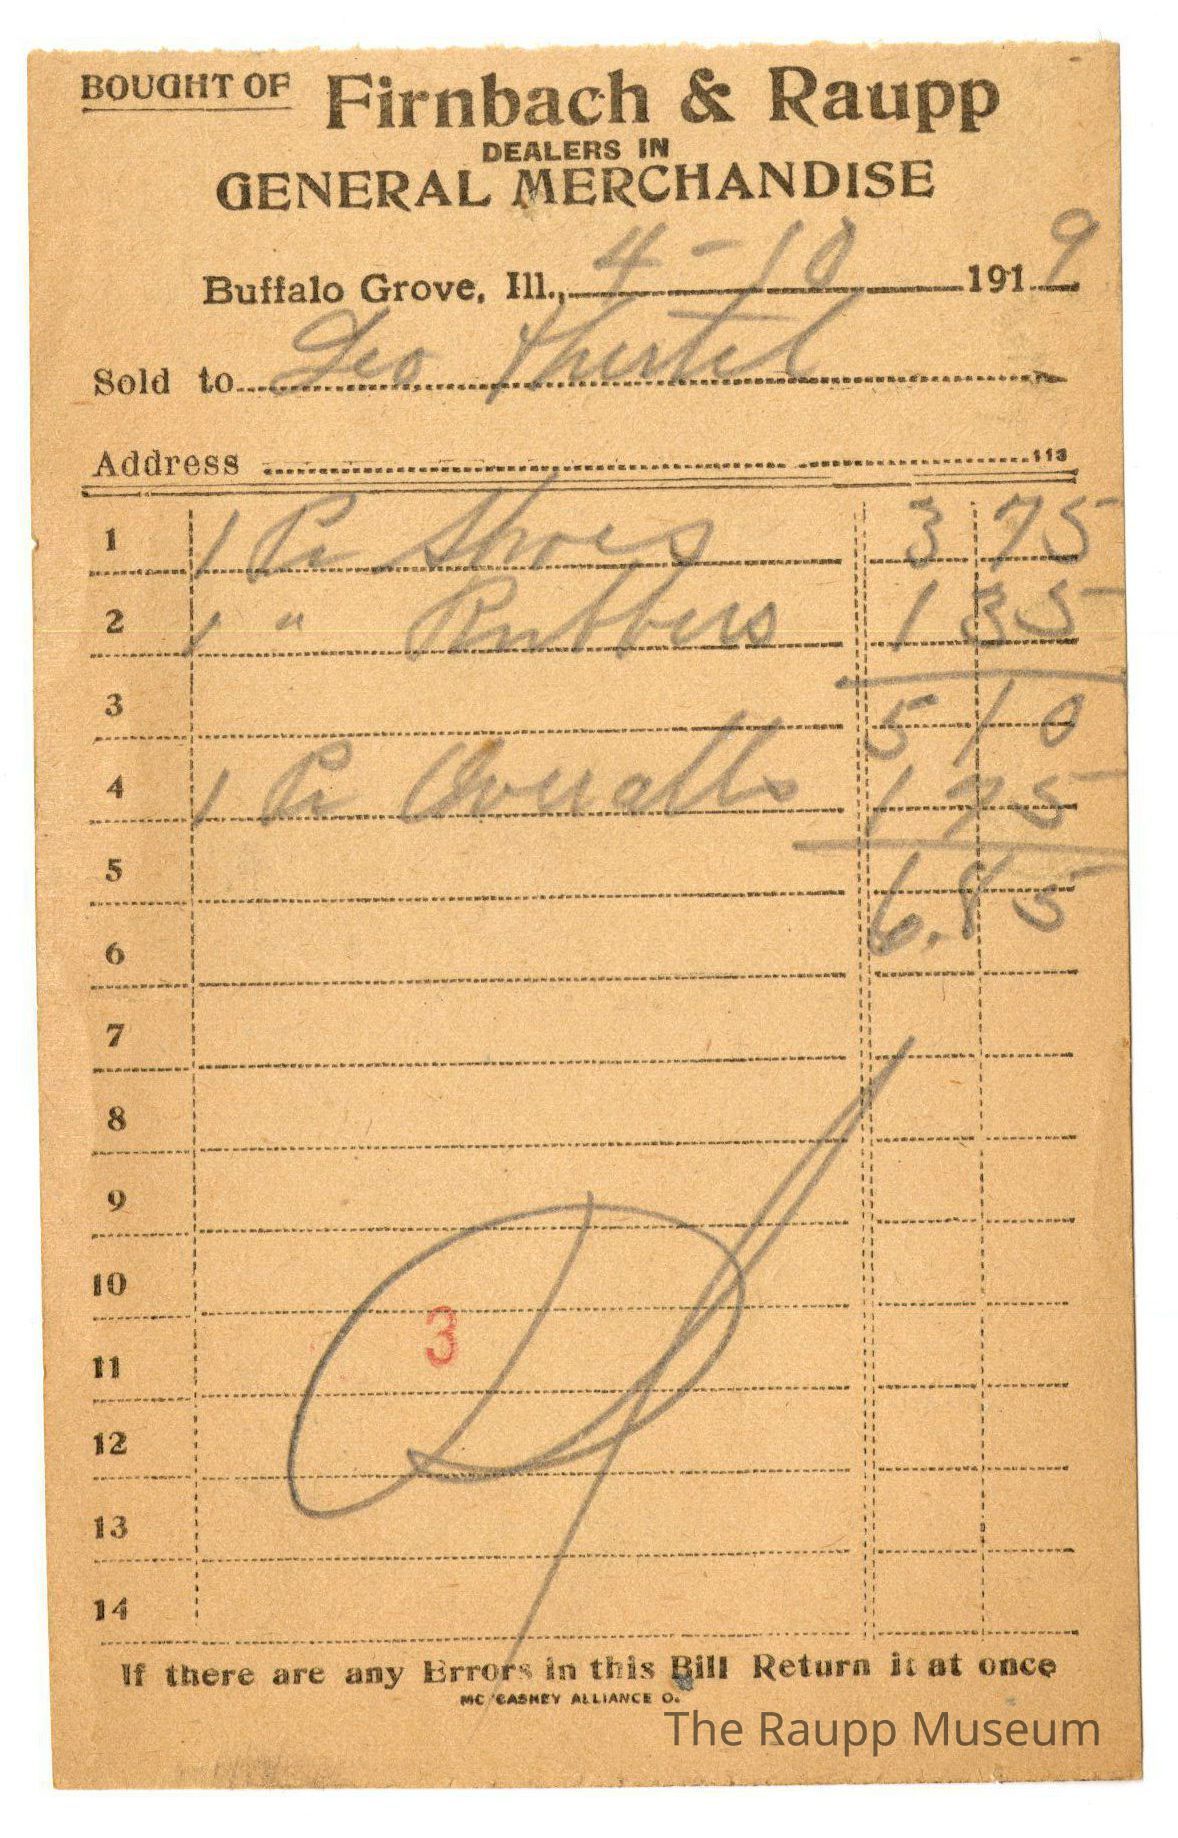 BOUGHT OF Firnbach & Raupp
DEALERS IN
GENERAL MERCHANDISE
Buffalo Grove, Ill., 4-10 1919
Sold to Geo
Address 113
1 1 Pr Shoes 3 75
2 1 " Rubbers 1 35
3 5 10
4 1 Pr Overalls 1 75
5
6.85
6
7
8
9
10
3
11
12
13
14
If there are any Errors in this Bill Return it at once
MC CASKEY ALLIANCE O.
The Raupp Museum